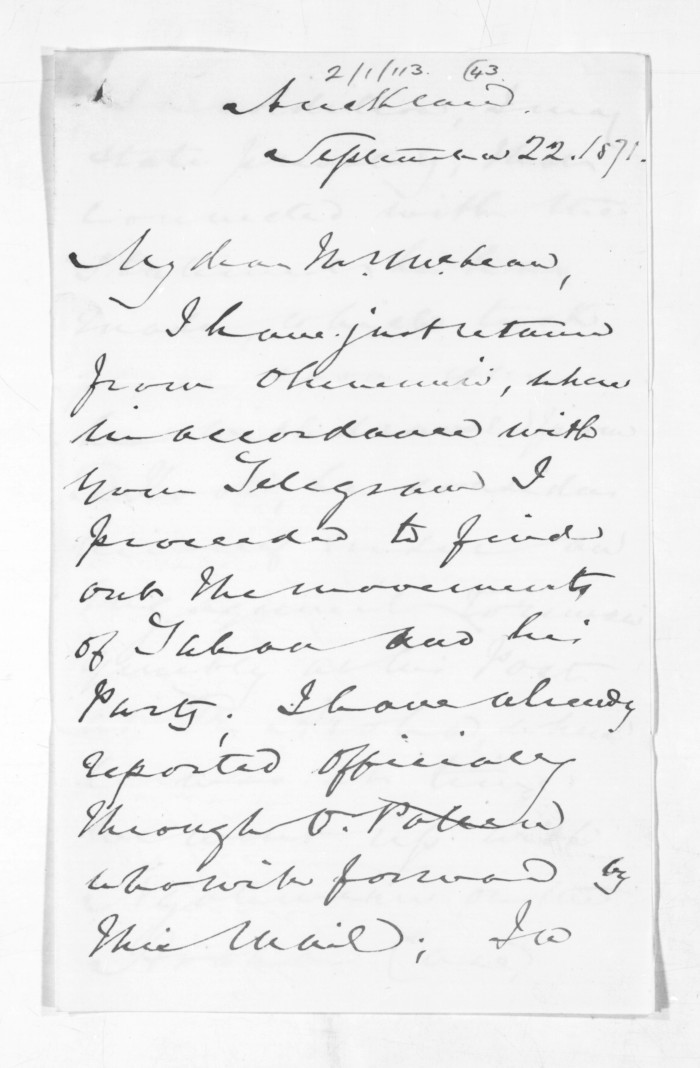 2/1/113. (43
Auckland.
September 22. 1871.
My dear Mr. McLean,
I have just returned
from Ohinemuri, where
in accordance with
your Telegram I
proceeded to find
out the movements
of and his
Party. I have already
reported officially
through D. Pollen
who will forward by
this Mail; In